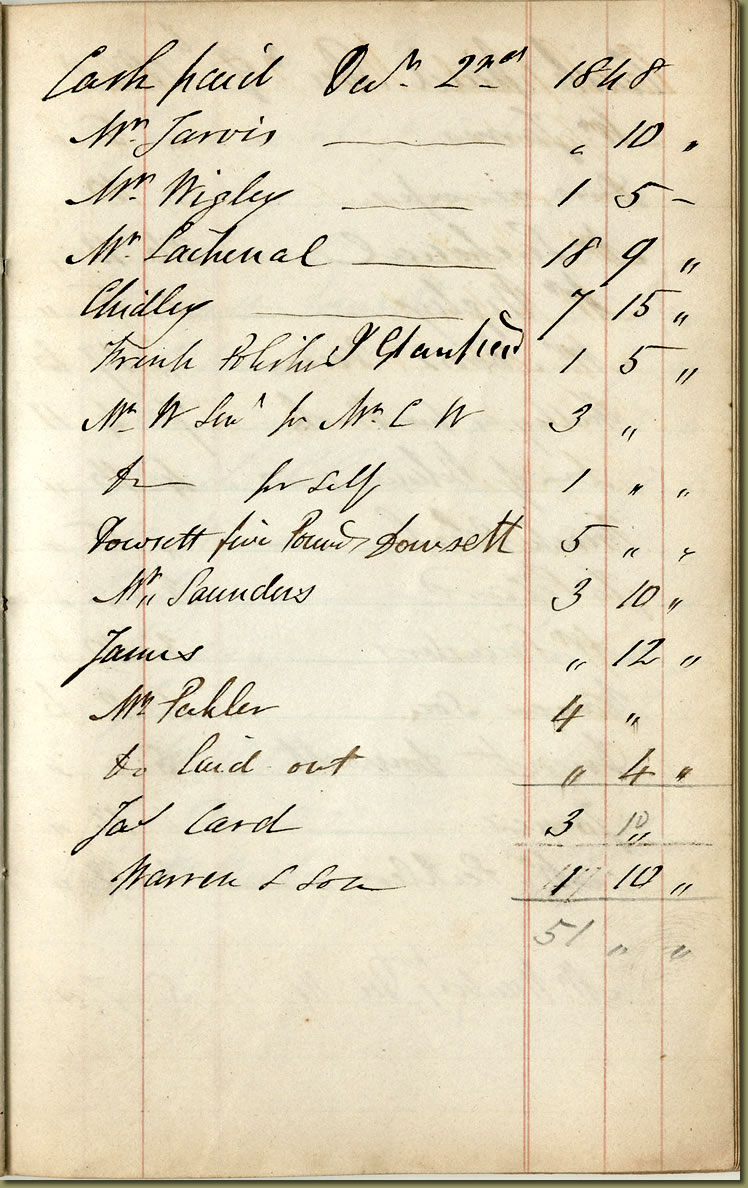 Cash paid Decr. 2nd 1848
Mr. Jarvis — „ 10 „
Mr. Wigley — 1 5 –
Mr. Lachenal — 18 9 „
Chidley — 7 15 „
French Polisher J Stanfield 1 5 „
Mr. W Senr for Mr. C W 3 „
Do for self 1 „ „
Dowsett five Pounds Dowsett 5 „ „
Mr„ Saunders 3 10 „
James „ 12 „
Mr. Pahler 4 „
Do laid out „ 4 „
Jas Card 3 10 „
Warren & Son 1 10 „
51 „ „